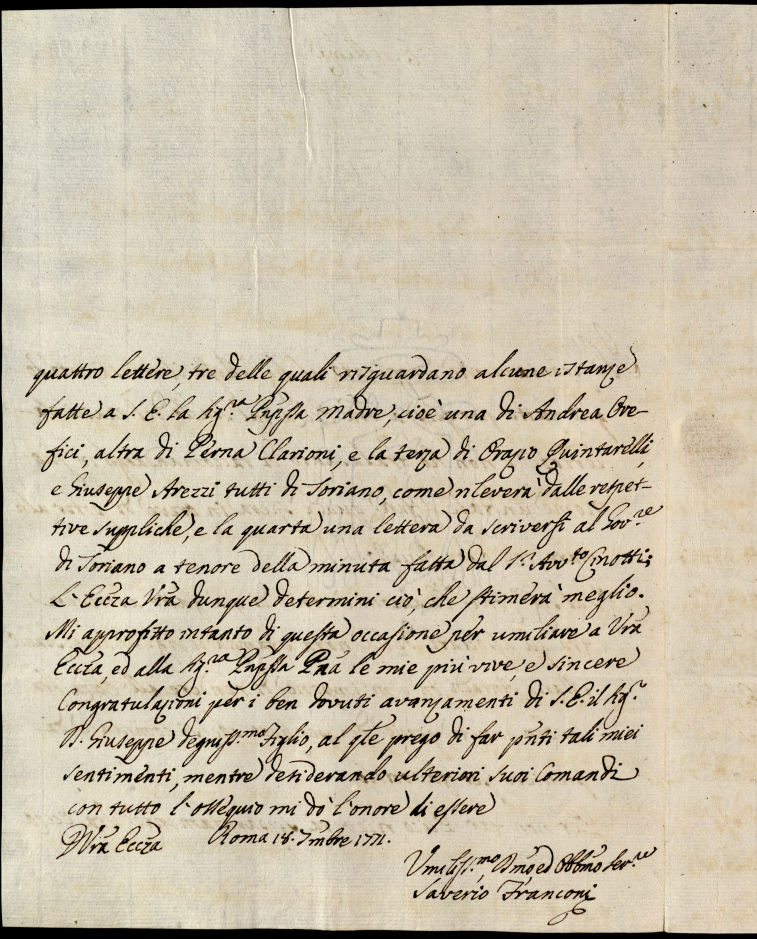 quattro lettere, tre delle quali risguardano alcune istanze
fatte a S. E. la Sig.ra Pnpssa Madre, cioè una di Andrea Ore-
fici, altra di Perna Clarioni, e la terza di Orazio Quintarelli,
e Giuseppe Arezzi tutti di Soriano, come rileverà dalle respet-
tive suppliche, e la quarta una lettera da scriversi al Gov.re
di Soriano a tenore della minuta fatta dal Sr. Avv.to Cinotti;
L'Eccza Vra dunque determini ciò, che stimerà meglio.
Mi approfitto intanto di questa occasione per umiliare a Vra
Eccza, ed alla Sig.ra Pnpssa Pna le mie più vive, e sincere
Congratulazioni per i ben dovuti avanzamenti di S. E. il Sig.r
D. Giuseppe degniss.mo Figlio, al qle prego di far pnti tali miei
sentimenti, mentre desiderando ulteriori suoi Comandi
con tutto l'ossequio mi dò l'onore di essere
D Vra Eccza Roma 18. 7mbre 1771.
Umiliss.mo, Dmo ed Obbmo Ser.re
Saverio Franconi